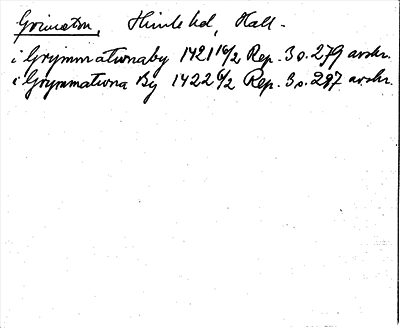 Grimeton, Himle hd, Hall.
i Grymmatunaby 1421 16/2 Rep. 3 s. 279 avskr.
i Grymmatuna By 1422 6/2 Rep. 3 s. 287 avskr.